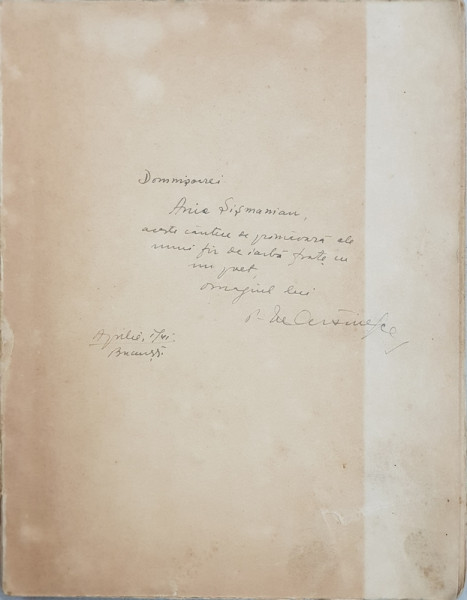 Domnișoarei
Anie Șișmanian,
aceste cântece de primăvară ale
unui fir de iarbă frate cu
un poet,
omagiul lui
Aprilie,
București